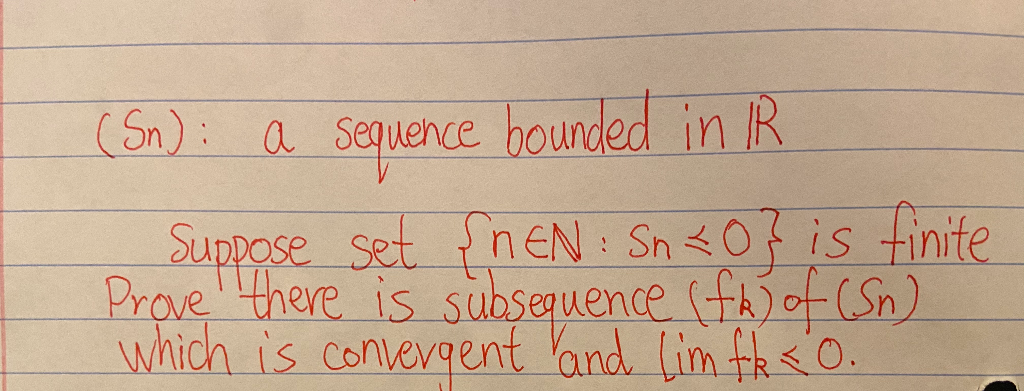 (Sn): a sequence bounded in ℝ
Suppose set {n∈N : Sn ≤ 0} is finite
Prove there is subsequence (fk) of (Sn)
which is convergent and lim fk < 0.